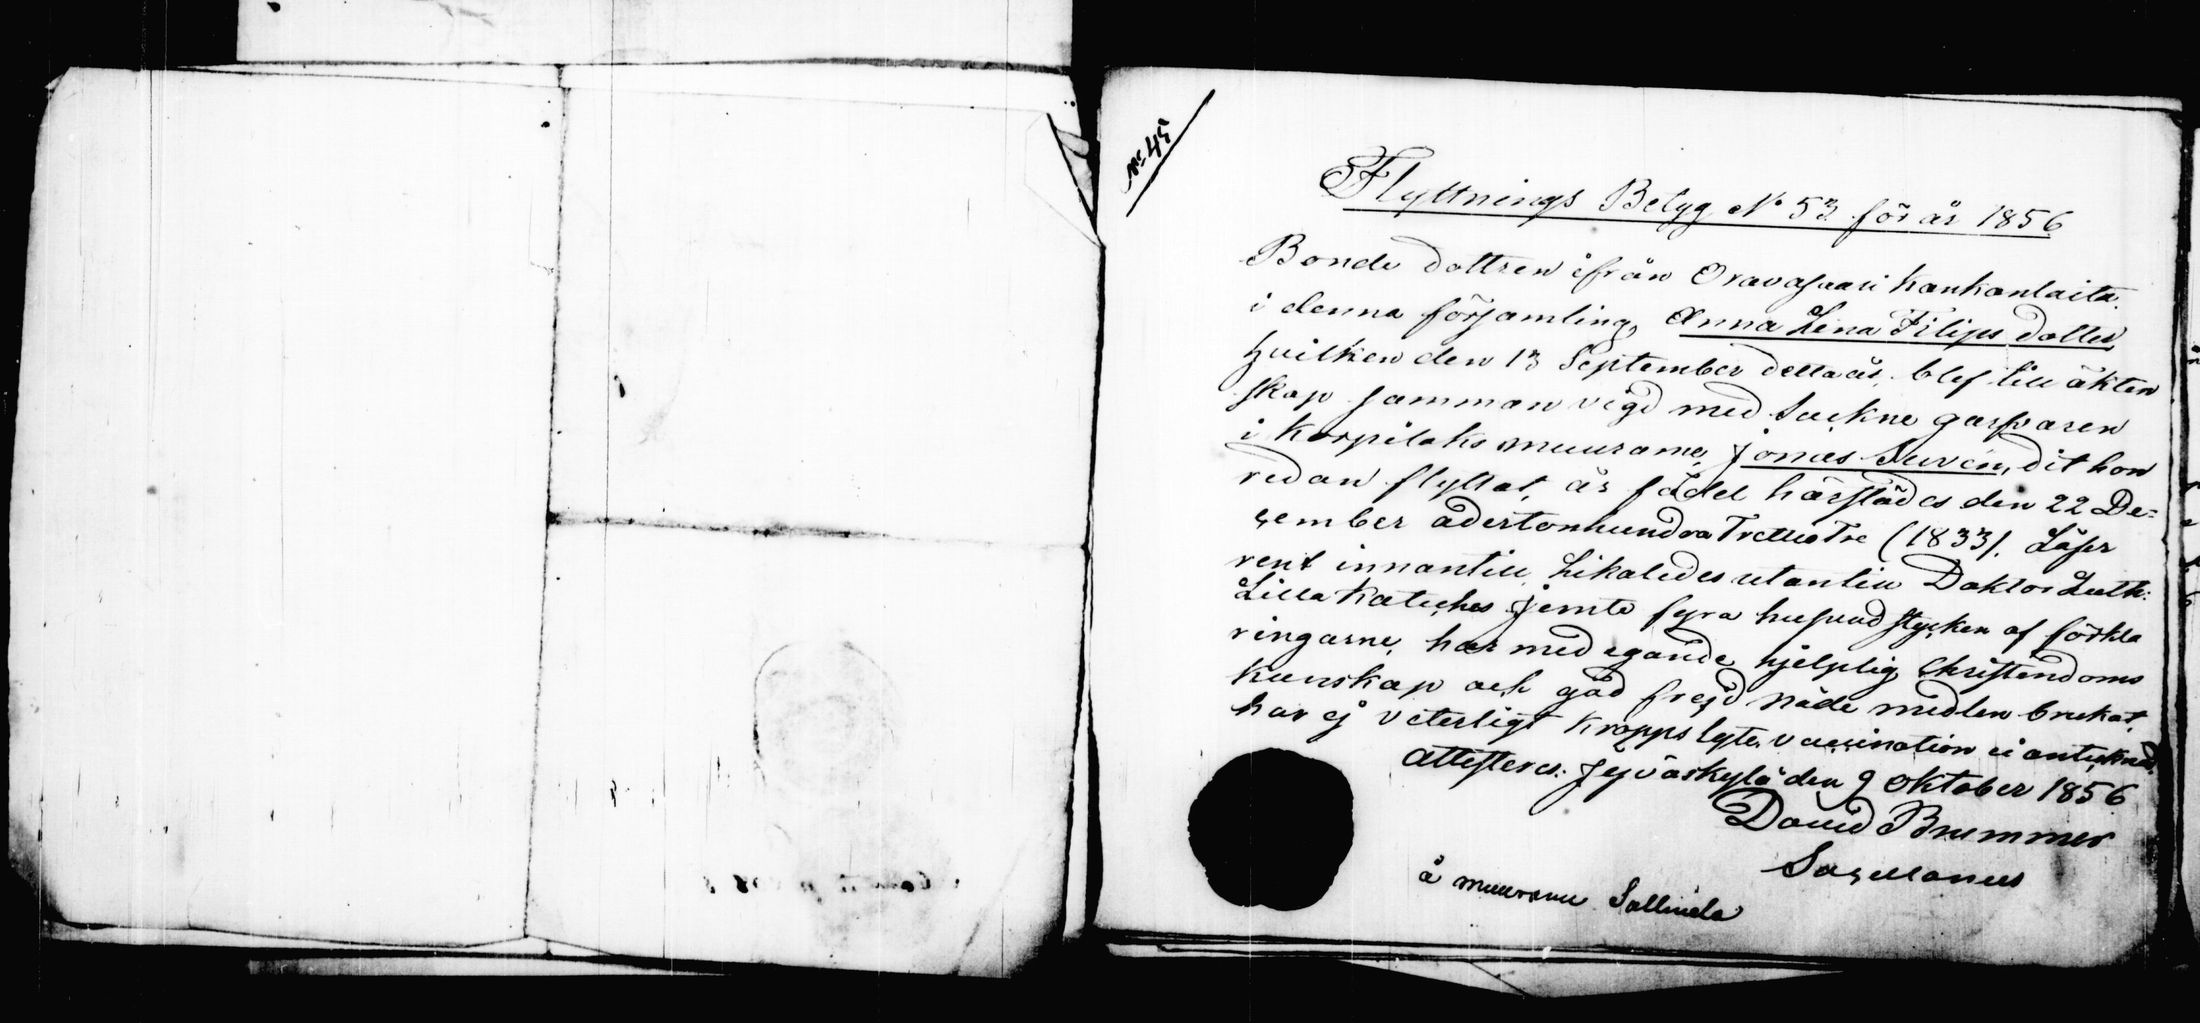 No 45
Flyttnings Betyg No 53 för år 1856
Bonde dottren ifrån Oravasaari Kankanlaita
i denna församling, Anna Lena Filips dotter
hvilken den 13 September detta år, blef till äkten
skap samman vigd med Enkne garfvaren
i Korpilaks Muurame, Jonas Surén, dit hon
redan flyttat, är född härstädes den 22 De=
cember adertonhundra Trettio Tre (1833). Läser
rent innantill, likaledes utantill Doktor Luth:
Lilla Kateches jemte fyra hufvud stycken af förkla
ringarne, har med egande hjelplig Christendoms
kunskap och god frejd nåde medlen brukat,
har ej veterligt kropps lyte, vaccination ei antecknad.
Attesteres. Jyväskylä den 9 Oktober 1856
David Brummer
Sacellanus
å Muurame Sallinela